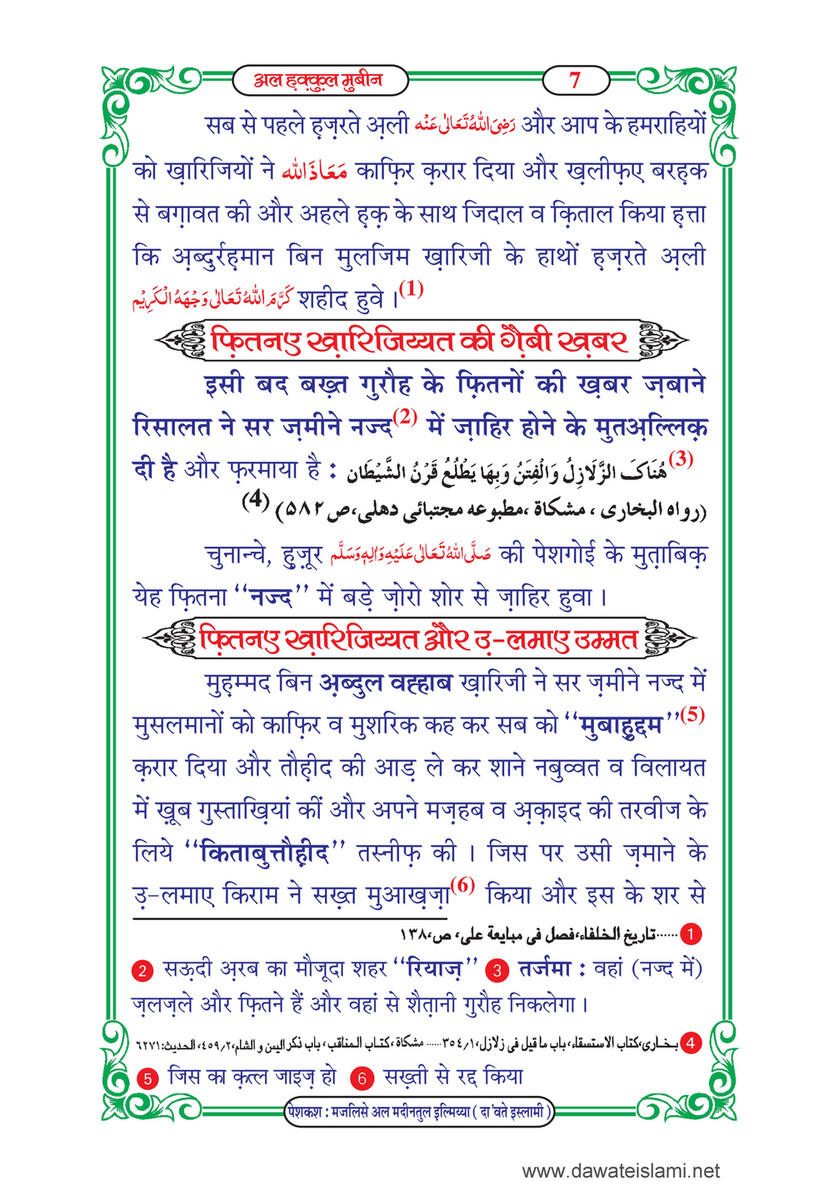 अल ह़क़्क़ुल मुबीन
7
सब से पहले ह़ज़रते अ़ली رَضِیَ اللّٰهُ تَعَالٰی عَنْه और आप के हमराहियों
को ख़ारिजियों ने مَعَاذَ اللّٰه काफ़िर क़रार दिया और ख़लीफ़ए बरह़क़
से बग़ावत की और अहले ह़क़ के साथ जिदाल व क़िताल किया ह़त्ता
कि अ़ब्दुर्रह़मान बिन मुलजिम ख़ारिजी के हाथों ह़ज़रते अ़ली
کَرَّمَ اللّٰهُ تَعَالٰی وَجْهَهُ الْکَرِیْم शहीद हुवे ।(1)
फ़ितनए ख़ारिजिय्यत की ग़ैबी ख़बर
इसी बद बख़्त गुरौह के फ़ितनों की ख़बर ज़बाने
रिसालत ने सर ज़मीने नज्द(2) में ज़ाहिर होने के मुतअ़ल्लिक़
दी है और फ़रमाया है : هُنَاکَ الزَّلَازِلُ وَالْفِتَنُ وَبِهَا یَطْلُعُ قَرْنُ الشَّیْطَان(3)
(رواہ البخاری ، مشکاۃ ،مطبوعہ مجتبائی دھلی،ص۵۸۲) (4)
चुनान्चे, हुज़ूर صَلَّی اللّٰهُ تَعَالٰی عَلَیْهِ وَاٰلِهٖ وَسَلَّم की पेशगोई के मुत़ाबिक़
येह फ़ितना ‘‘नज्द’’ में बड़े ज़ोरो शोर से ज़ाहिर हुवा ।
फ़ितनए ख़ारिजिय्यत और उ़-लमाए उम्मत
मुह़म्मद बिन अ़ब्दुल वह्हाब ख़ारिजी ने सर ज़मीने नज्द में
मुसलमानों को काफ़िर व मुशरिक कह कर सब को ‘‘मुबाहुद्दम’’(5)
क़रार दिया और तौह़ीद की आड़ ले कर शाने नबुव्वत व विलायत
में ख़ूब गुस्ताख़ियां कीं और अपने मज़हब व अ़क़ाइद की तरवीज के
लिये ‘‘किताबुत्तौह़ीद’’ तस्नीफ़ की । जिस पर उसी ज़माने के
उ़-लमाए किराम ने सख़्त मुआख़ज़ा(6) किया और इस के शर से
1 ......تاریخ الخلفاء،فصل فی مبایعة علی، ص،۱۳۸
2 सऊ़दी अ़रब का मौजूदा शहर ‘‘रियाज़’’ 3 तर्जमा : वहां (नज्द में)
ज़लज़ले और फ़ितने हैं और वहां से शैत़ानी गुरौह निकलेगा ।
4 بخاری،کتاب الاستسقاء، باب ما قیل فی زلازل،۳۵۴/۱...... مشکاۃ ،کتاب المناقب، باب ذکر الیمن و الشام،۴۵۹/۲، الحدیث:۶۲۷۱
5 जिस का क़त्ल जाइज़ हो 6 सख़्ती से रद्द किया
पेशकश : मजलिसे अल मदीनतुल इ़ल्मिय्या ( दा 'वते इस्लामी )
www.dawateislami.net